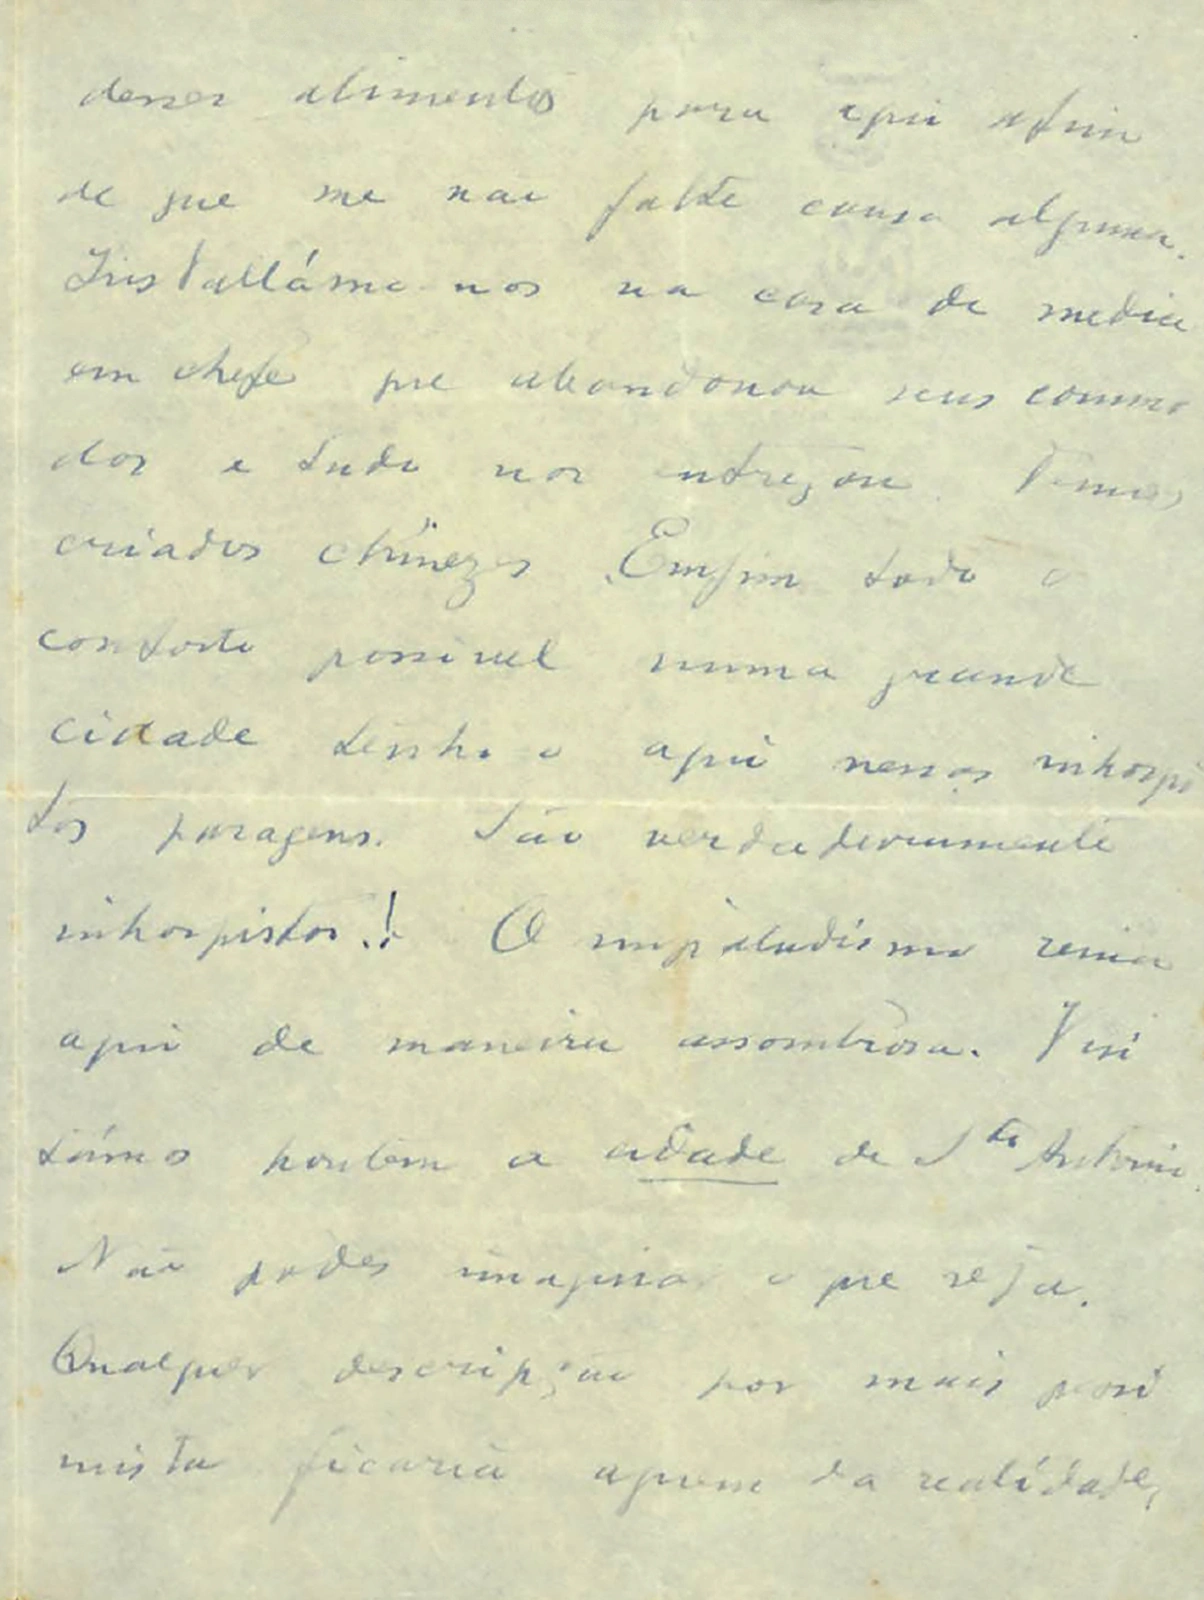 desses alimentos para aqui afim
de que me não falte cousa alguma.
Installámo-nos na casa do medico
em chefe que abandonou seus commo
dos e tudo nos entregou. Temos
criados chinezes. Emfim todo o
conforto possivel numa grande
cidade tenho o aqui nessas inhospi
tas paragens. São verdadeiramente
inhospitas! O impaludismo reina
aqui de maneira assombrosa. Visi
támos hontem a cidade de Sto Antonio.
Não podes imaginar o que seja.
Qualquer descripção por mais pessi
mista ficaria aquem da realidade,